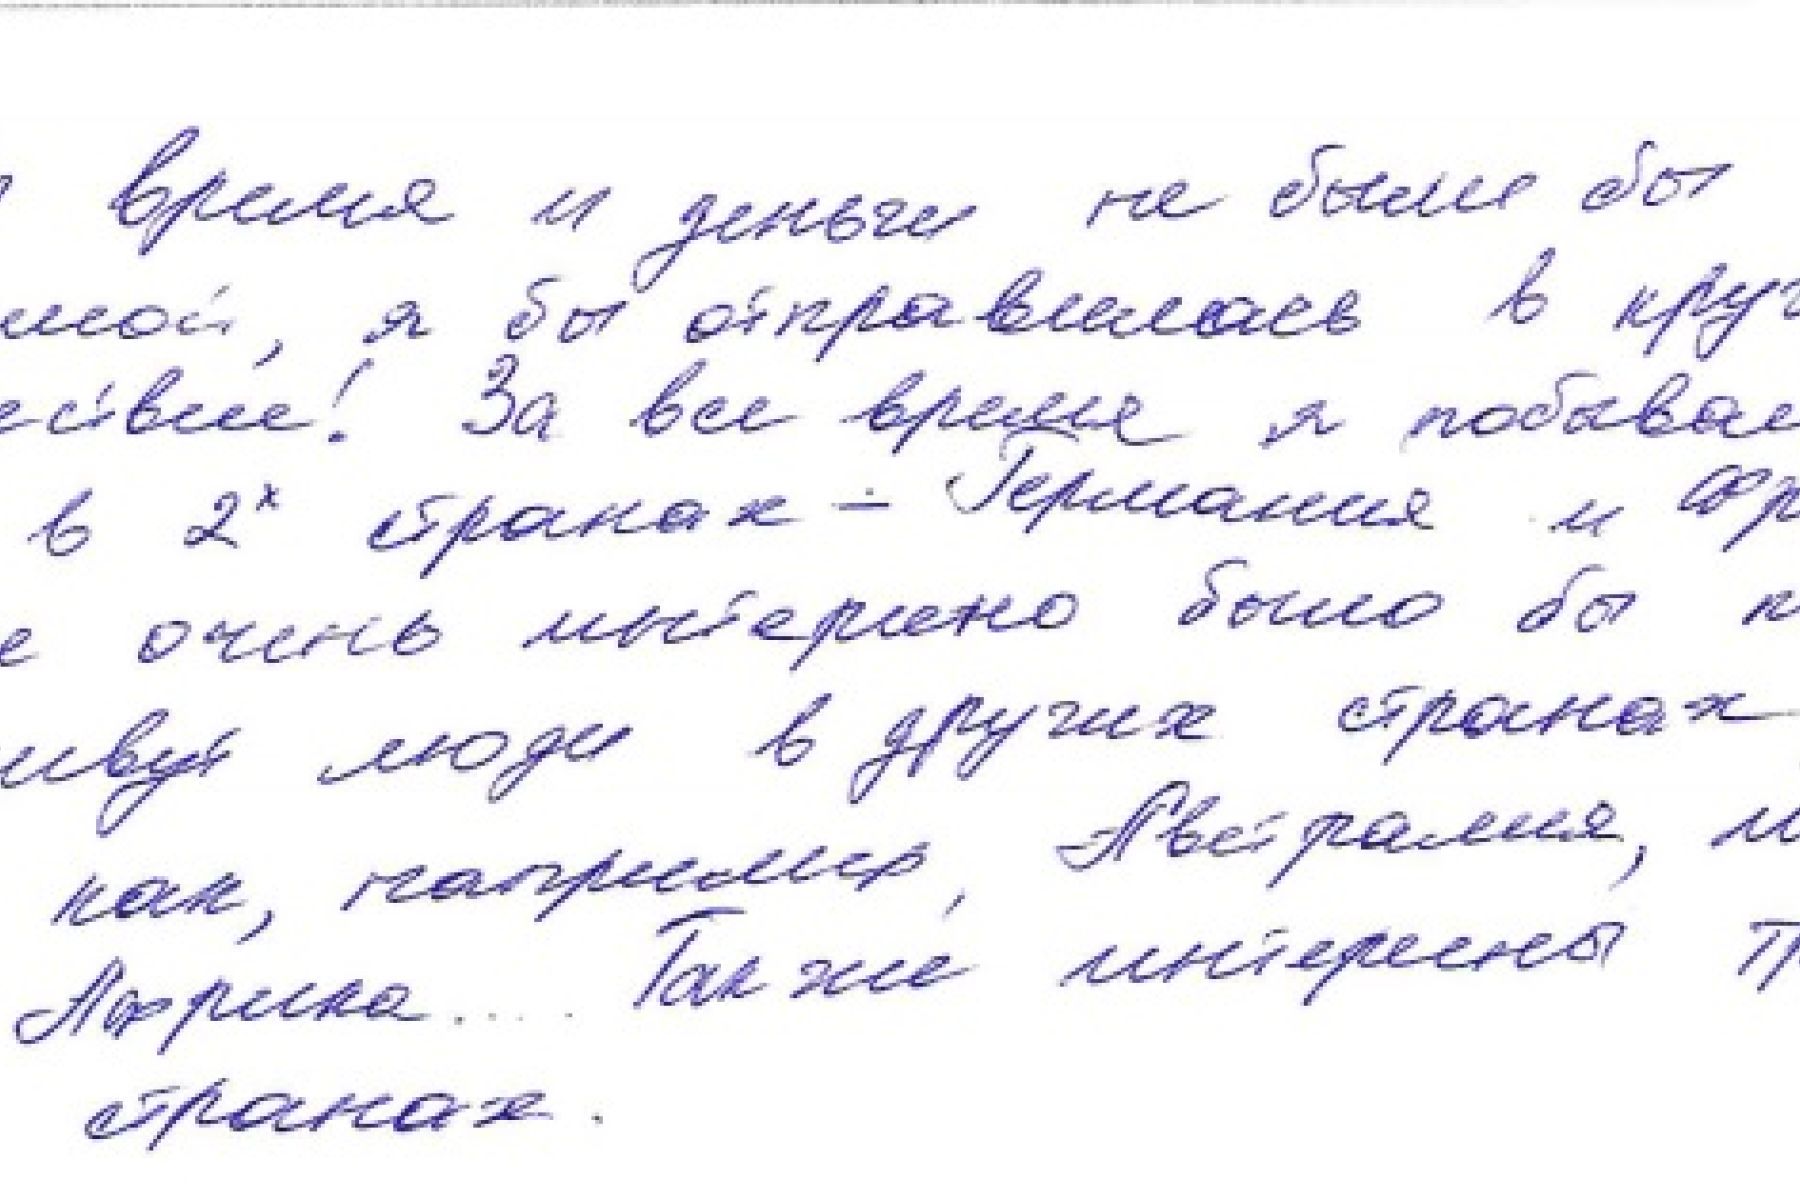 время и деньги не были бы
мой, я бы отправилась в круг
ествие! За все время я побывал
в 2х странах – Германия и Фр
е очень интересно было бы п
ивут люди в других странах,
как, например, Австралия, и
Африка.... Также интересны тр
странах.